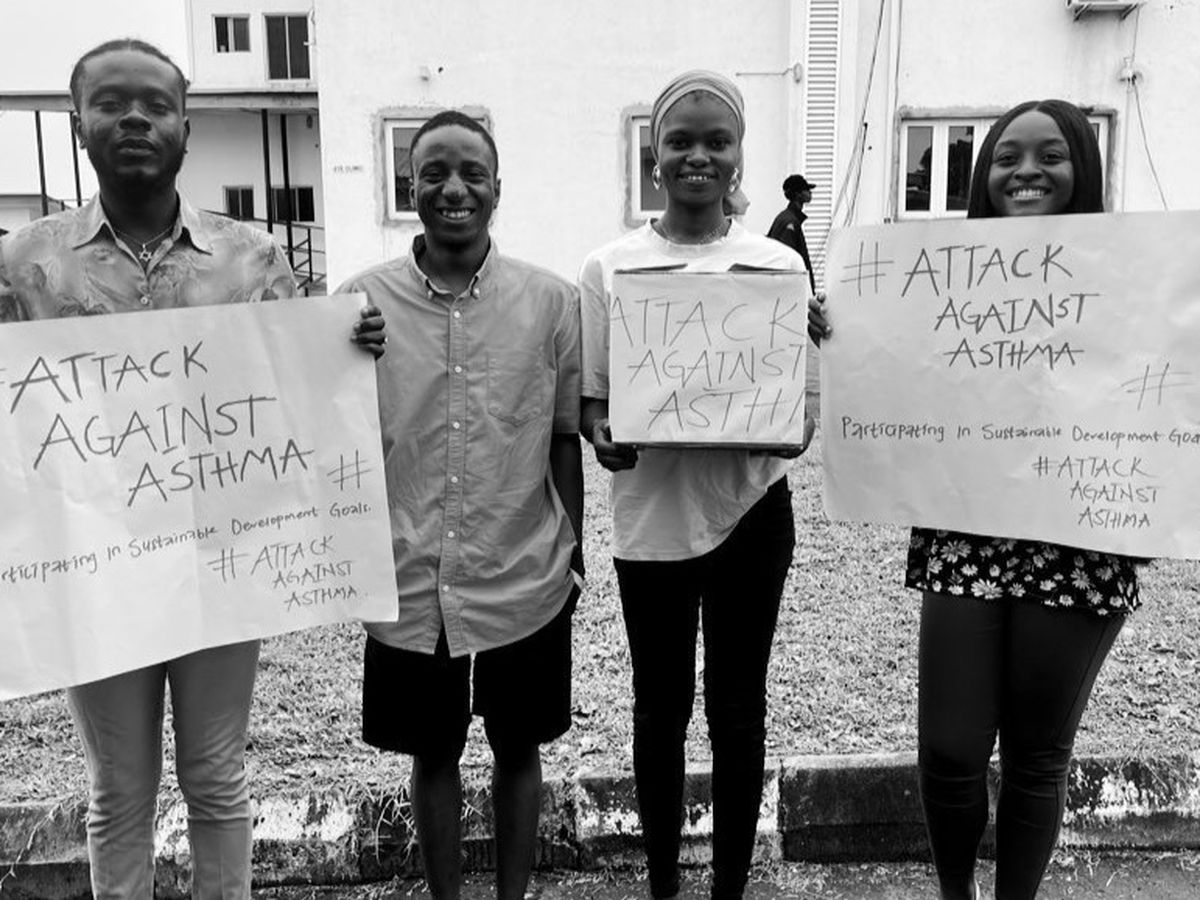 #ATTACK
AGAINST
ASTHMA
#
Participating In Sustainable Development Goals.
#ATTACK
AGAINST
ASTHMA.
ATTACK
AGAINST
ASTH
#ATTACK
AGAINST
ASTHMA
#
Participating In Sustainable Development Goa
#ATTACK
AGAINST
ASTHMA